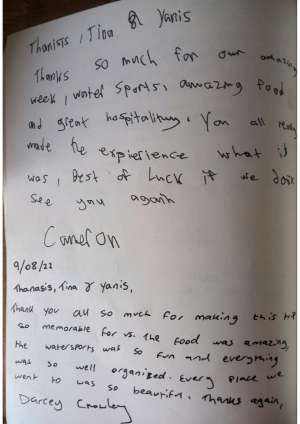 Thanisis, Tina & Yanis
Thanks so much for our amazing
week, water sports, amazing food
and great hospitality. You all really
made the expierience what it
was, Best of Luck if we don't
see you again
Cameron
9/08/22
Thanasis, Tina & Yanis,
Thank you all so much for making this trip
so memorable for us. The food was amazing,
the watersports was so fun and everything
was so well organised. Every place we
went to was so beautiful. Thanks again,
Darcey Crowley